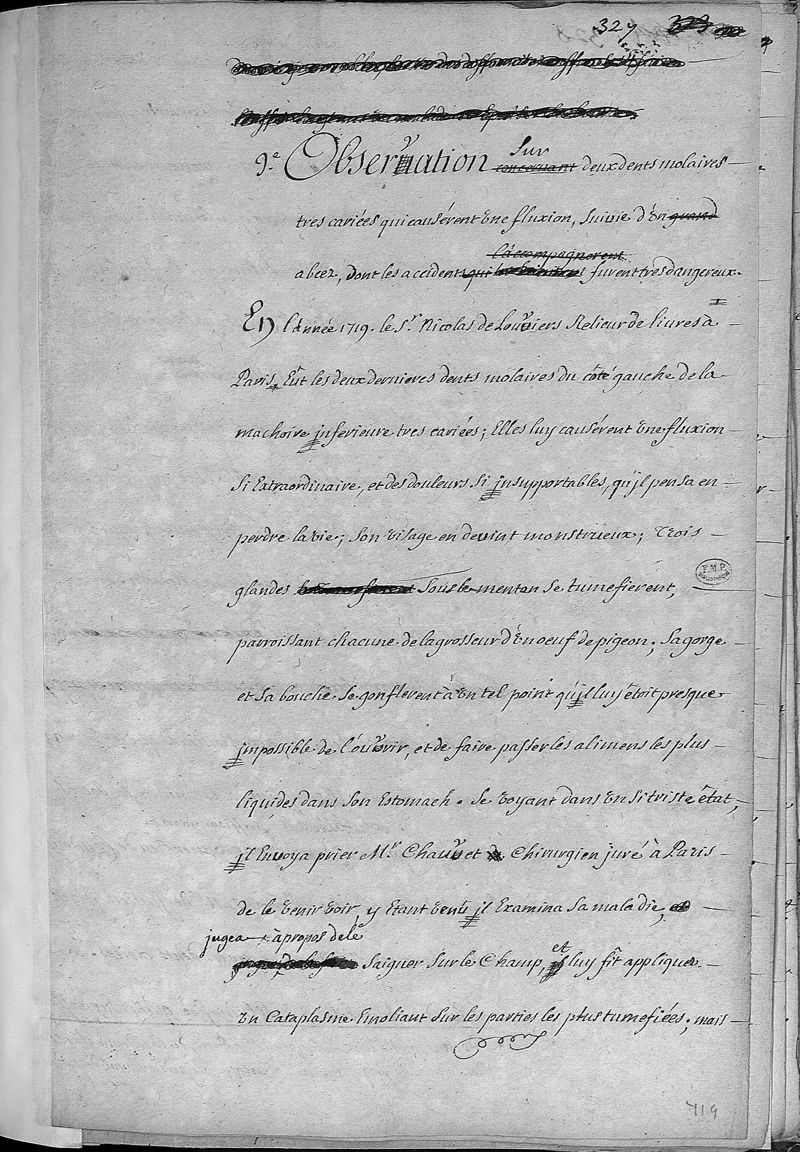 327
9.e Observation sur concernant deux dents molaires
tres cariées qui causérent une fluxion, suivie d'un grand
l'accompagnerent
abcez, dont les accidents qui furent tres dangereux.
En l'année 1719. le Sr. Nicolas de Louviers Relieur de livres à
Paris, Eût les deux dernieres dents molaires du côté gauche de la
machoire inferieure tres cariées; Elles luy causérent une fluxion
si Extraordinaire, et des douleurs si insupportables, qu'il pensa en
perdre la vie; son visage en devint monstrueux; Trois
glandes sous le menton se tumefierent,
parroissant chacune de la grosseur d'un oeuf de pigeon; sa gorge
et sa bouche se gonflerent à un tel point qu'il luy étoit presque
impossible de l'ouvrir, et de faire passer les alimens les plus
liquides dans son Estomach. se voyant dans un si triste état,
il Envoya prier Mr. Chauvet Chirurgien juré à Paris
de le venir voir, y étant venu il Examina sa maladie,
jugea à propos de le
saigner sur le Champ, et luy fit appliquer
un Cataplasme Emoliant sur les parties les plus tumefiées; mais
F.M.P.
BIBLIOTHEQUE
719